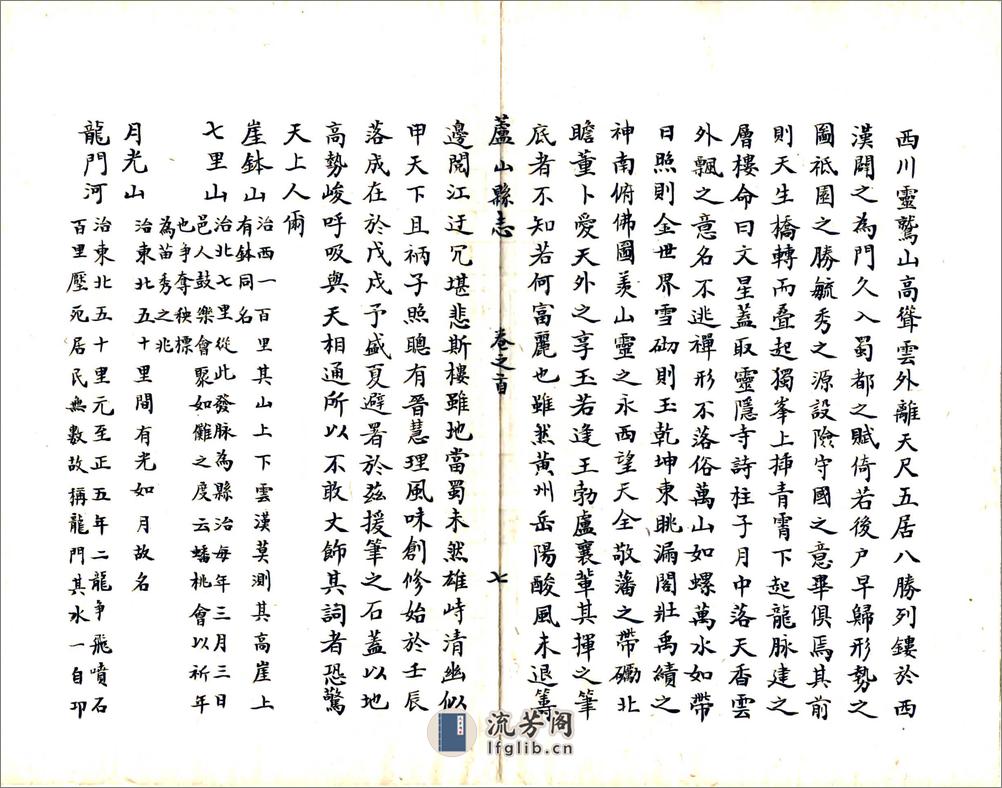 西川靈鷲山高聳雲外離天尺五居八勝列鏤於西
漢闢之為門久入蜀都之賦倚若後户早歸形勢之
圖祇園之勝毓秀之源設險守國之意畢俱焉其前
則天生橋轉而叠起獨峯上揷青霄下起龍脉建之
層樓命曰文星蓋取靈隱寺詩柱子月中落天香雲
外飄之意名不逃禪形不落俗萬山如螺萬水如帶
日照則金世界雪砌則玉乾坤東眺漏閣壯禹績之
神南俯佛圖羙山靈之永西望天全敬藩之帶礪北
瞻董卜愛天外之享玉若逢王勃盧襄軰其揮之筆
底者不知若何富麗也雖然黄州岳陽酸風未退籌
蘆山縣志
卷之首
七
邊閱江迂冗堪悲斯樓雖地當蜀未然雄峙清幽似
甲天下且衲子照聰有晉慧理風味創修始於壬辰
落成在於戊戌予盛夏避署於兹援筆之石蓋以地
高勢峻呼吸與天相通所以不敢丈飾其詞者恐驚
天上人爾
崖鉢山
治西一百里其山上下雲漢莫測其高崖上
有鉢同名
七里山
治北七里從此發脉為縣治每年三月三日
邑人鼓樂會聚如儺之度云蟠桃會以祈年
也爭奪秧標
為苗秀之兆
月光山
治東北五十里間有光如月故名
龍門河
治東北五十里元至正五年二龍爭飛噴石
百里壓死居民無數故稱龍門其水一自卭
流芳阁
lfglib.cn